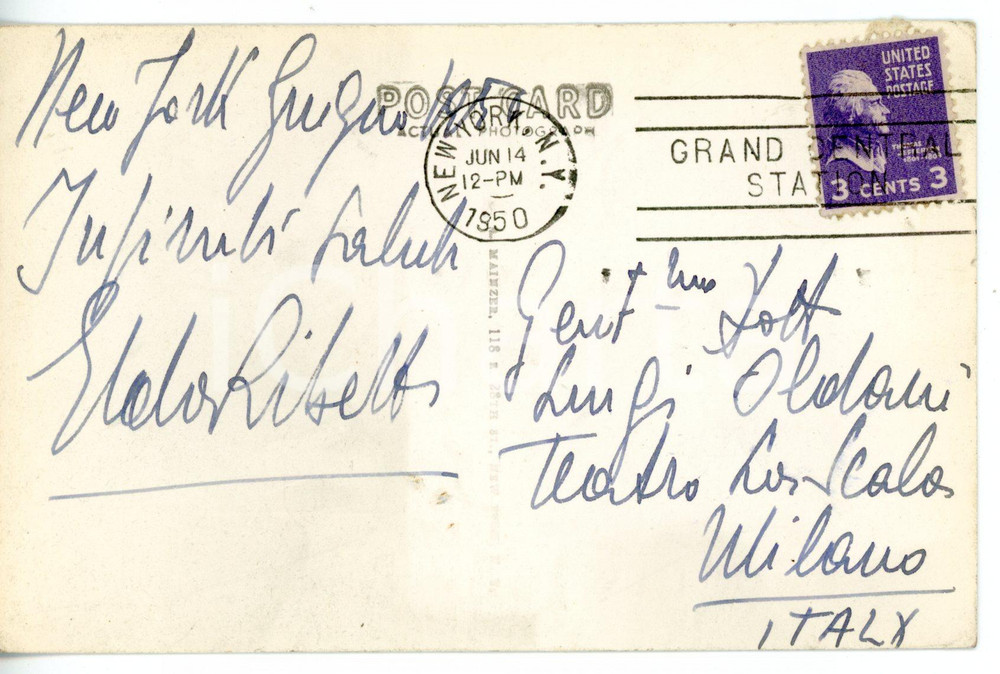 New York Giugno 1950
Infiniti saluti
Eldo Ribetti
POST CARD
ACTUAL PHOTOGRAPH
NEW YORK, N.Y.
JUN 14
12-PM
1950
GRAND CENTRAL
STATION
UNITED
STATES
POSTAGE
THOMAS
JEFFERSON
1801-1809
3 CENTS 3
MAINZER, 118 E. 28TH ST., NEW
Gent mo Dott
Luigi Oldani
Teatro La Scala
Milano
ITALY